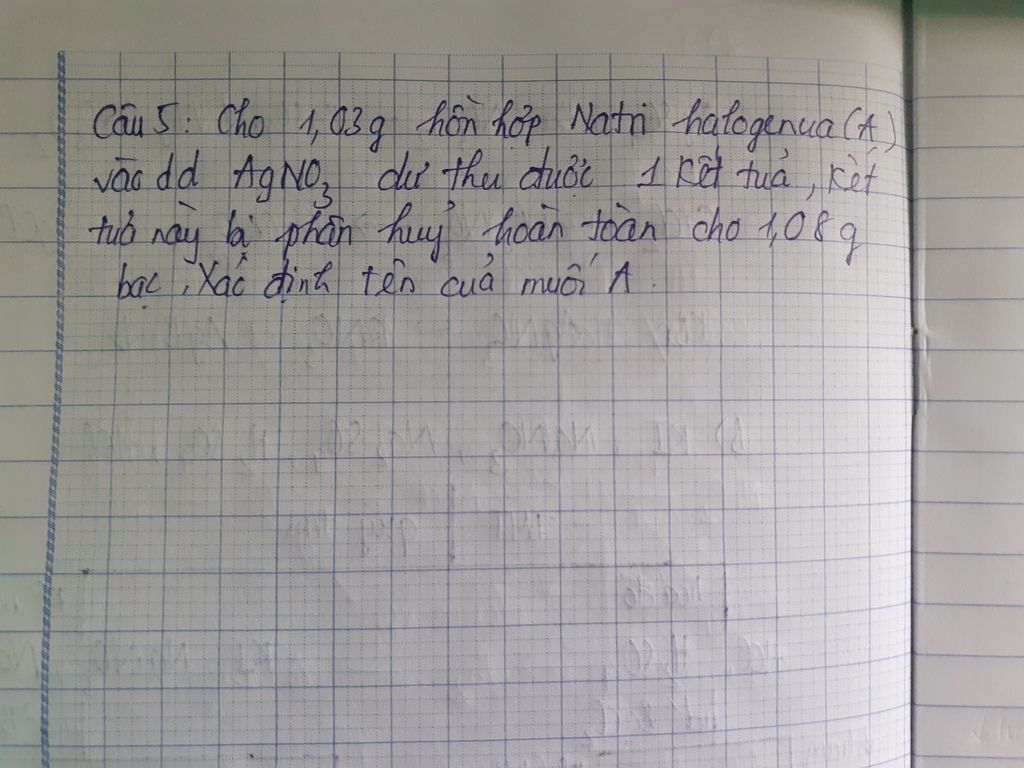 Câu 5: Cho 1,03g hỗn hợp Natri halogenua (A)
vào dd AgNO3 dư thu được 1 kết tủa, kết
tủa này bị phân huỷ hoàn toàn cho 1,08g
bạc. Xác định tên của muối A.